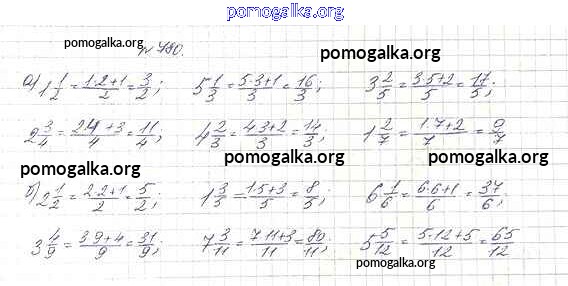 pomogalka.org
pomogalka.org
№ 780.
pomogalka.org
а) 1 1/2 = (1·2+1)/2 = 3/2; 5 1/3 = (5·3+1)/3 = 16/3; 3 2/5 = (3·5+2)/5 = 17/5;
2 3/4 = (2·4+3)/4 = 11/4; 4 2/3 = (4·3+2)/3 = 14/3; 1 2/7 = (1·7+2)/7 = 9/7
pomogalka.org pomogalka.org pomogalka.org
б) 2 1/2 = (2·2+1)/2 = 5/2; 1 3/5 = (1·5+3)/5 = 8/5; 6 1/6 = (6·6+1)/6 = 37/6;
3 4/9 = (3·9+4)/9 = 31/9; 7 3/11 = (7·11+3)/11 = 80/11; 5 5/12 = (5·12+5)/12 = 65/12
pomogalka.org